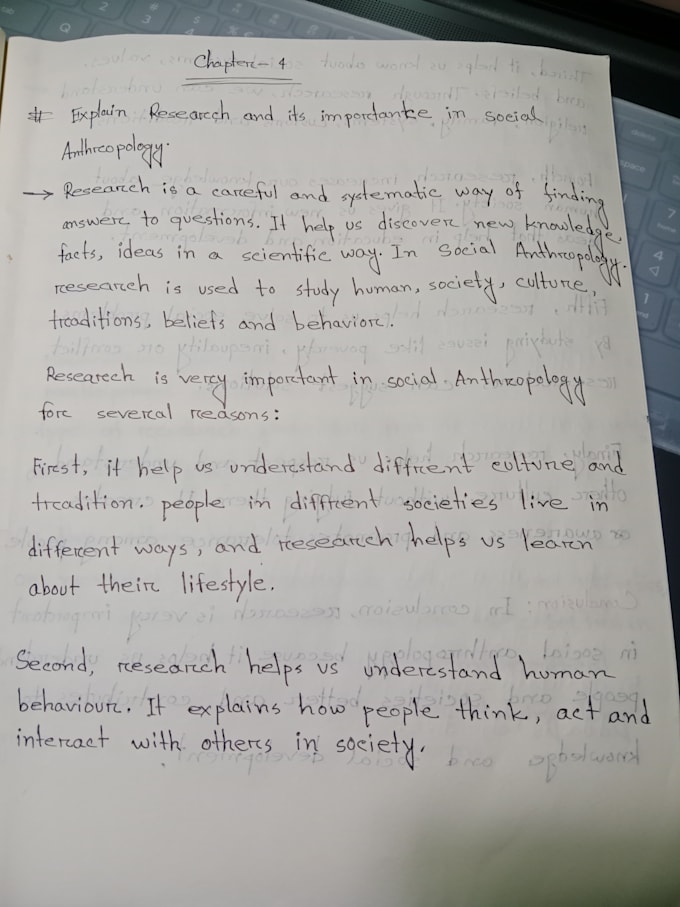 Chapter- 4
# Explain Research and its importanke in social
Anthropology.
→ Research is a careful and systematic way of finding
answer to questions. It help us discover new knowledge,
facts, ideas in a scientific way. In Social Anthropology.
research is used to study human, society, culture,
traditions, beliefs and behavior.
Research is very important in social Anthropology
for several reasons:
First, it help us understand diffrent culture and
tradition. people in diffrent societies live in
different ways, and research helps us learn
about their lifestyle.
Second, research helps us understand human
behaviour. It explains how people think, act and
interact with others in society.